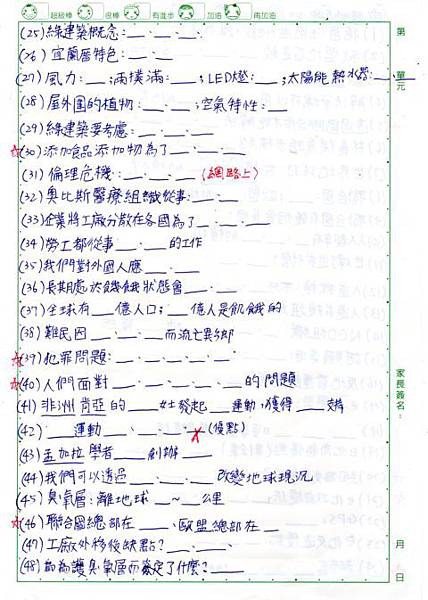 超級棒 很棒 有進步 加油 再加油
第 單元
(25)綠建築概念:__、__、__
(26)宜蘭厝特色:__、__
(27)風力:__;兩撲滿:__;LED燈:__;太陽能熱水器:__、__
(28)屋外圍的植物:__、__;空氣特性:__
(29)綠建築要考慮:__、__、__
☆(30)添加食品添加物為了__、__、__
(31)倫理危機:__、__(網路上)
(32)奧比斯醫療組織從事:__、__
(33)企業將工廠分散在各國為了__、__
(34)勞工都從事__、__的工作
(35)我們對外國人應__、__、__
(36)長期處於饑餓狀態會__、__、__
(37)全球有__億人口;__億人是飢餓的
(38)難民因__、__而流亡異鄉
☆(39)犯罪問題:__、__、__、__、__
☆(40)人們面對__、__、__、__的問題
(41)非洲肯亞的__女士發起__運動,獲得__獎
(42)__運動__、__、__(優點)
(43)孟加拉學者__創辦__
(44)我們可以透過__、__、__改變地球現況
(45)臭氧層:離地球__~__公里
☆(46)聯合國總部在__、歐盟總部在__
(47)工廠外移後缺點?__、__、__
(48)為維護臭氧層而簽定了什麼?__、__
家長簽名:
月 日